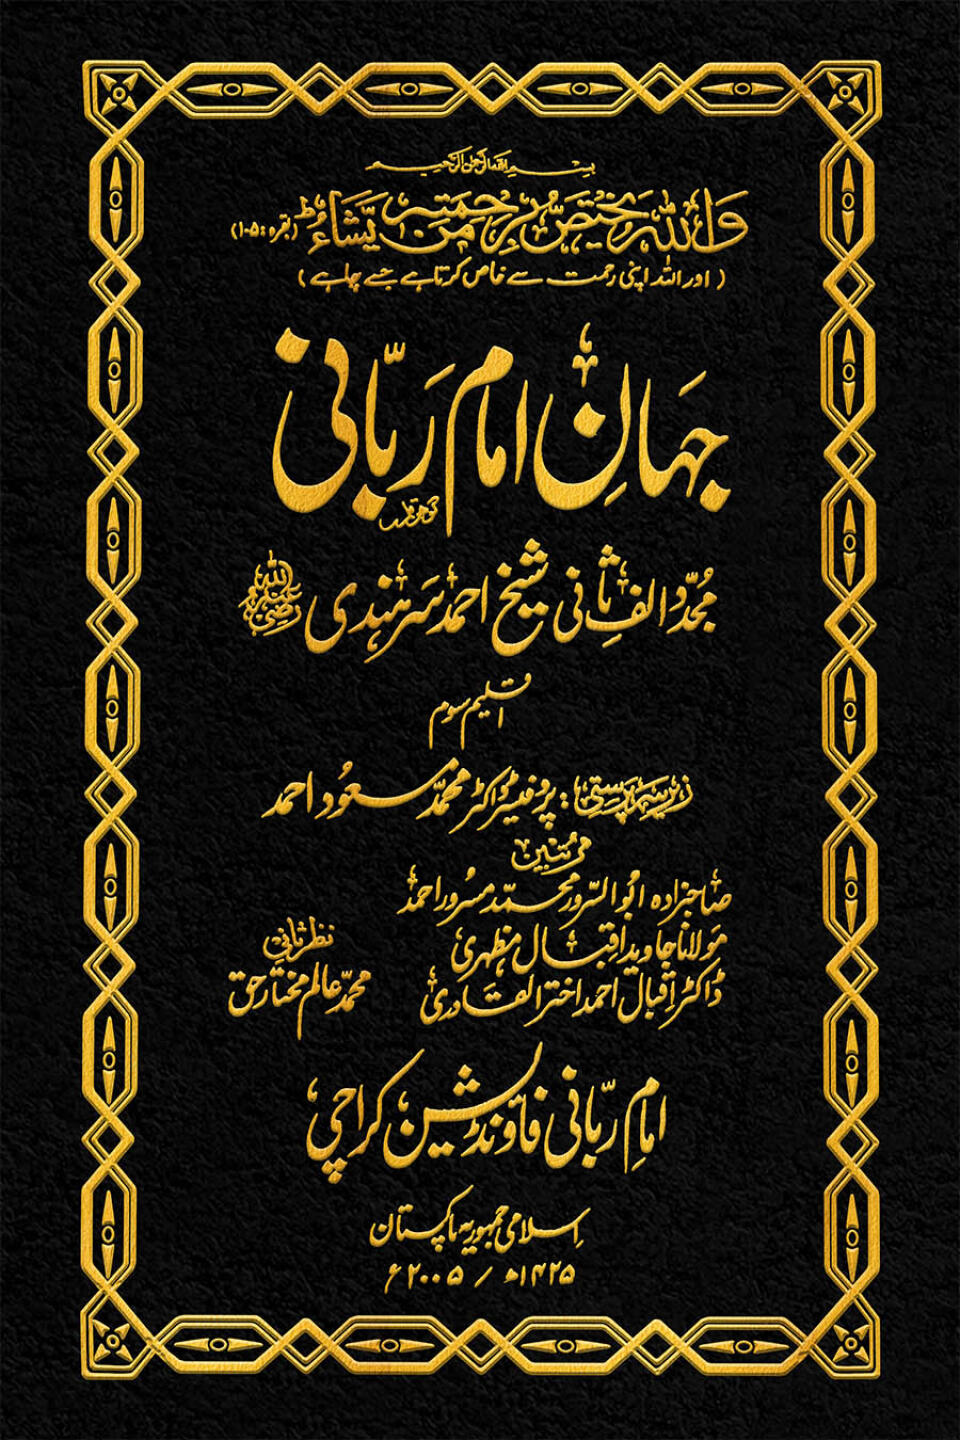 بسم اللہ الرحمن الرحیم
وَاللّٰہُ یَخْتَصُّ بِرَحْمَتِہٖ مَنْ یَّشَآءُ ط (بقرہ:۱۰۵)
(اور اللہ اپنی رحمت سے خاص کرتا ہے جسے چاہے)
جہانِ امام ربّانی
مجدّد الفِ ثانی شیخ احمد سرہندی رضی اللہ عنہ
اقلیم سوم
زیر سرپرستی: پروفیسر ڈاکٹر محمّد مسعُود احمد
مرتبین
صاحبزادہ ابُوالسّرور محمّد مسرُور احمد
مَولانا جاوید اقبال مظہری
ڈاکٹر اقبال احمد اختر القادری
نظرثانی
محمّد عالم مختارِ حق
امامِ ربّانی فاؤنڈیشن کراچی
اِسلامی جمہوریہ پاکستان
۱۴۲۵ھ / ۲۰۰۵ء